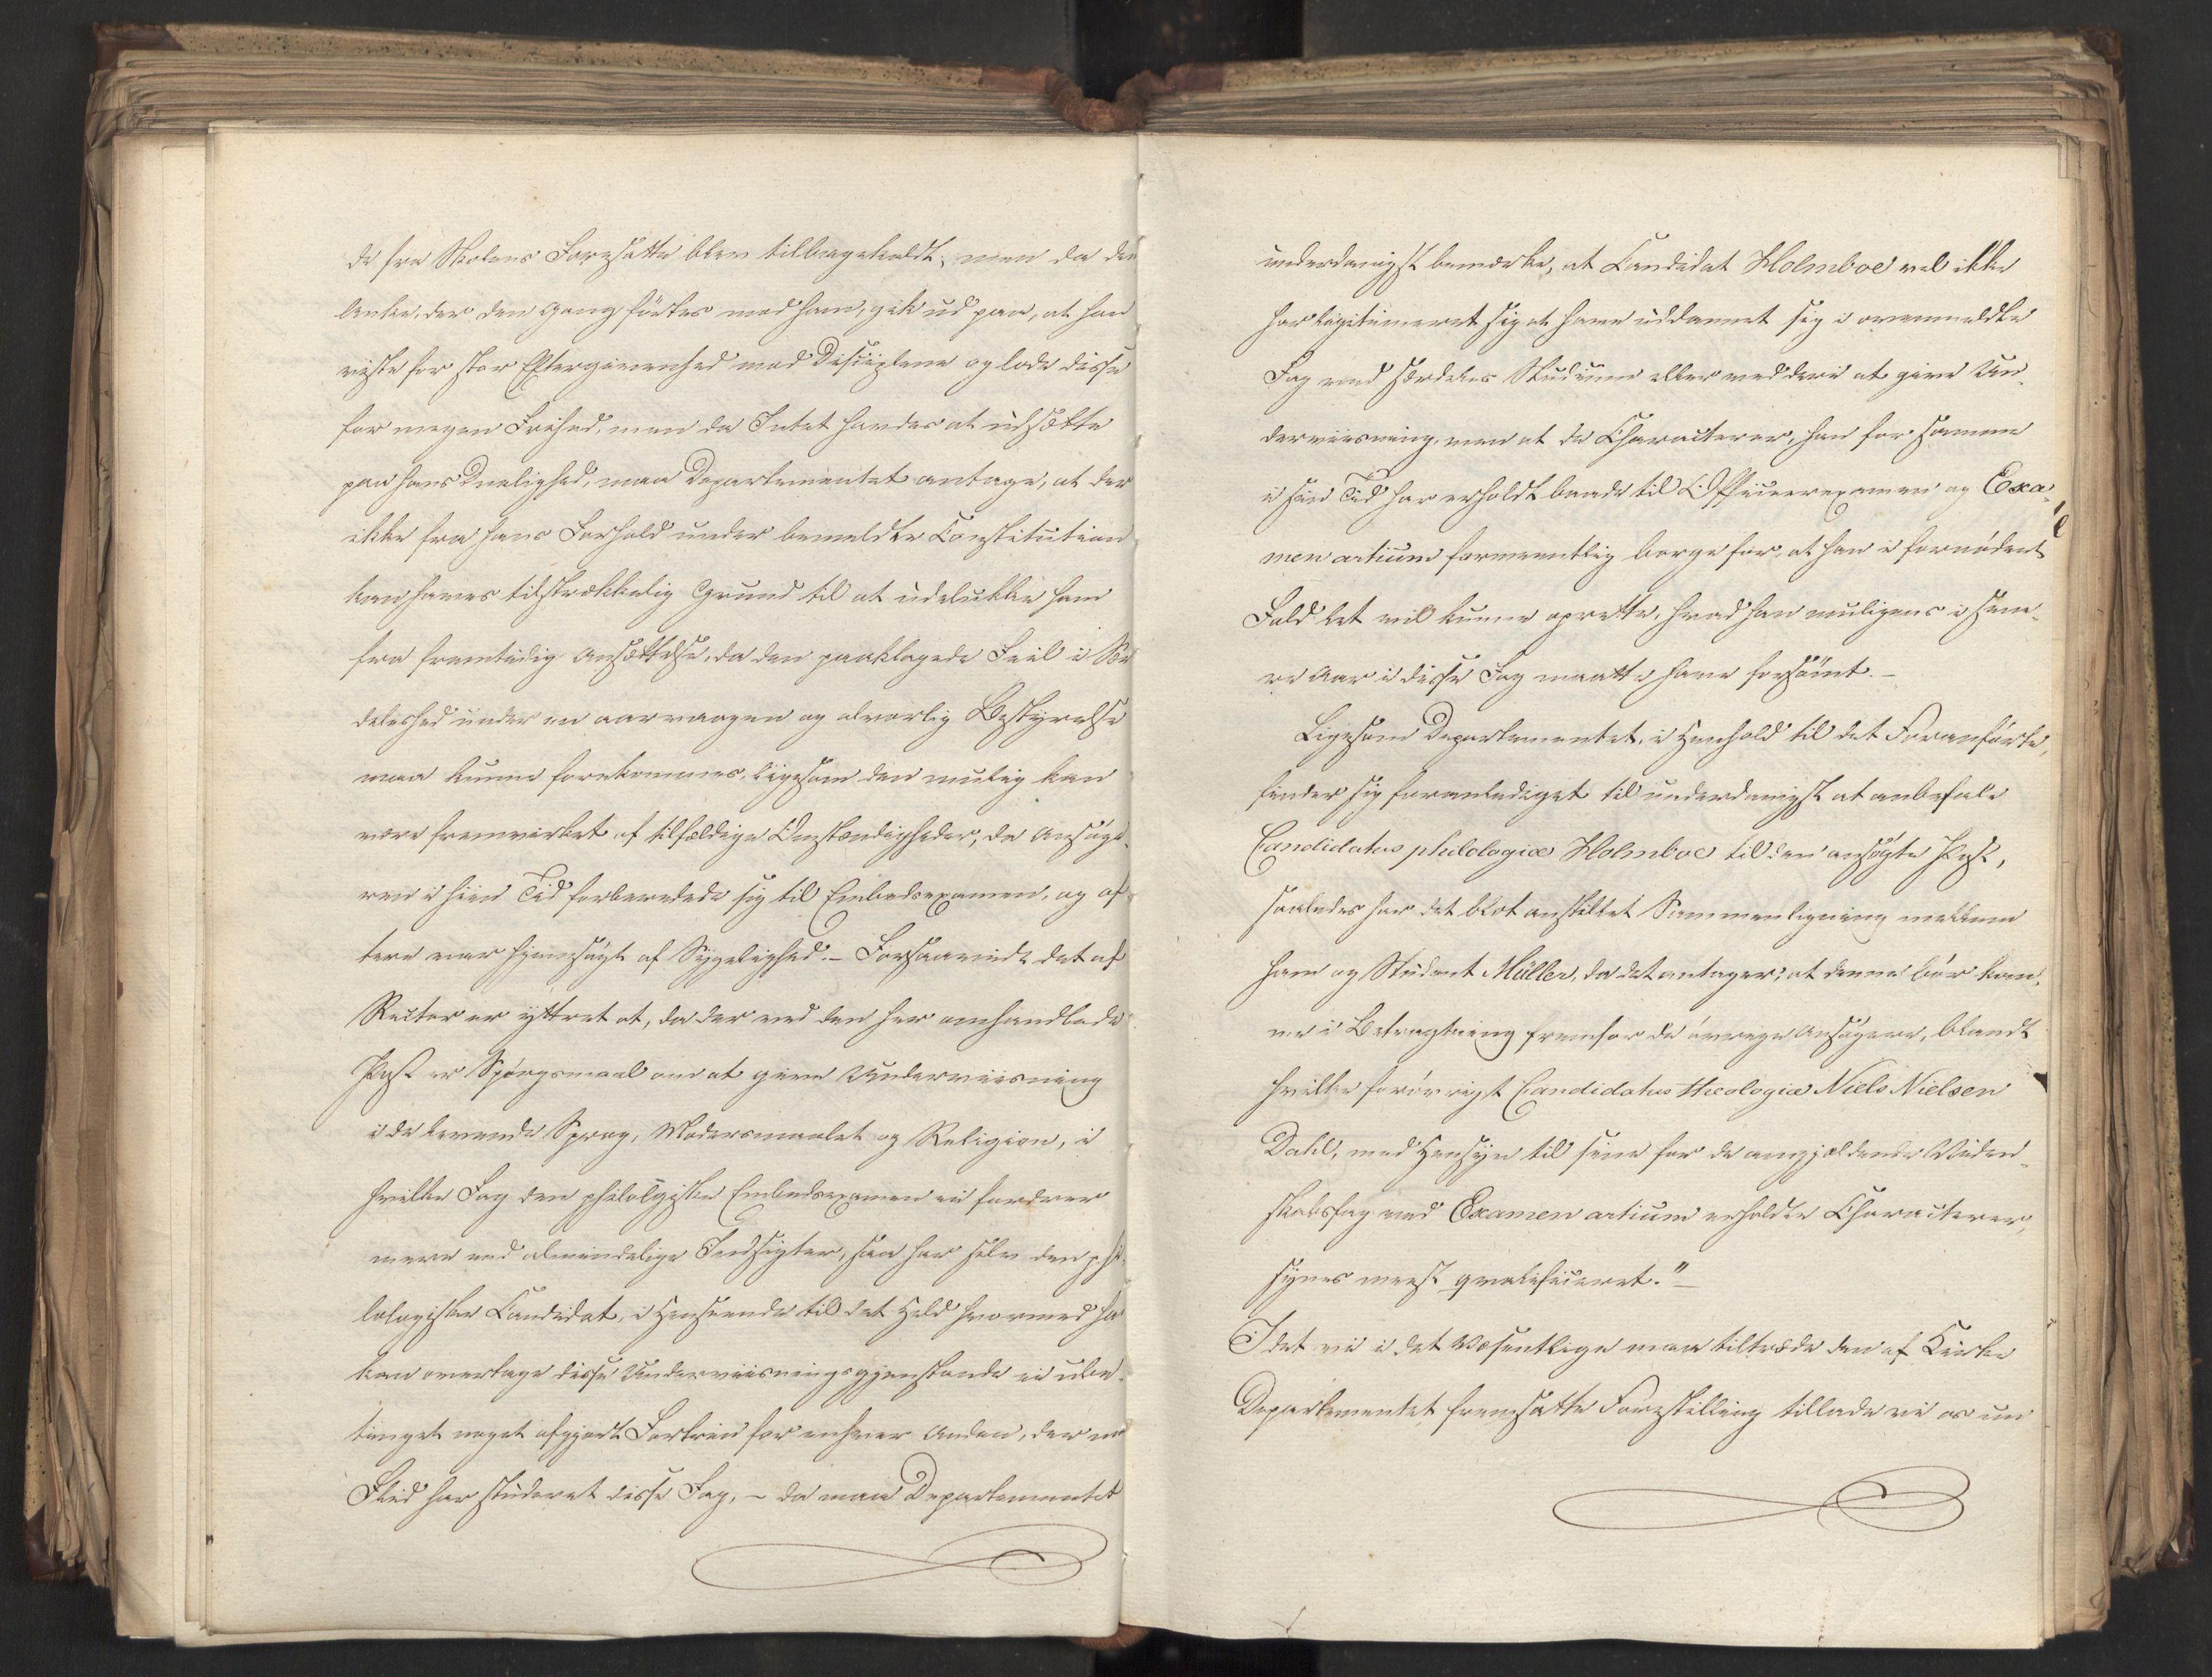 de fra Skolens Foresatte blev tilbagekaldt; men da den
Anke, der den Gang førtes mod ham, gik ud paa, at han
viste for stor Eftergivenhed mod Disciplene og lod disse
for megen Frihed, men da Intet havdes at udsætte
paa hans Duelighed, maa Departementet antage, at der
ikke fra hans Forhold under bemeldte Constitution
kan haves tilstrækkelig Grund til at udelukke ham
fra fremtidig Ansættelse, da den paaklagede Feil i Sæ
deleshed under en aarvaagen og alvorlig Bestyrelse
maa kunne forekommes, ligesom den mulig kan
være fremvirket af tilfældige Omstændigheder, da Ansøge-
ren i hiin Tid forberedede sig til Embedsexamen, og of-
tere var hjemsøgt af Sygelighed. - Forsaavidt det af
Rector er yttret at, da der ved den her omhandlede
Post er Spørgsmaal om at give Underviisning
i de levende Sprog, Modersmaalet og Religion, i
hvilke Fag den philolgiske Embedsexamen ei fordrer
mere end almindelige Indsigter, saa har selv den phi-
lologiske Candidat, i Henseende til det Held hvormed han
kan overtage disse Underviisningsgjenstande ei ube-
tinget noget afgjort Fortrin for enhver Anden, der med
Flid har studeret disse Fag, - da maa Departementet
underdanigst bemærke, at Candidat Holmboe vel ikke
har legitimeret sig at have uddannet sig i ovenmeldte
Fag ved særdeles Studium eller ved deri at give Un-
derviisning, men at de Characterer, han for samme
i sin Tid har erholdt baade til Officeerexamen og Exa-
men artium formeentlig borge for, at han i fornødent
Fald let vil kunne oprette, hvad han muligens i sene-
re Aar i disse Fag maatte have forsømt. -
Ligesom Departementet, i Henhold til det Foranførte,
finder sig foranlediget til underdanigst at anbefale
Candidatus philologiæ Holmboe til den ansøgte Post,
saaledes har det blot anstillet Sammenligning mellem
ham og Student Müller, da det antager, at denne bør kom-
me i Betragtning fremfor de øvrige Ansøgere, blandt
hvilke forøvrigt Candidatus theologiæ Niels Nielsen
Dahl, med Hensyn til sine for de angjældende Viden-
skabsfag ved Examen artium erholdte Characterer,
synes meest qvalificeret." -
Idet vi i det Væsentlige maa tiltræde den af Kirke
Departementet fremsatte Forestilling tillade vi os un